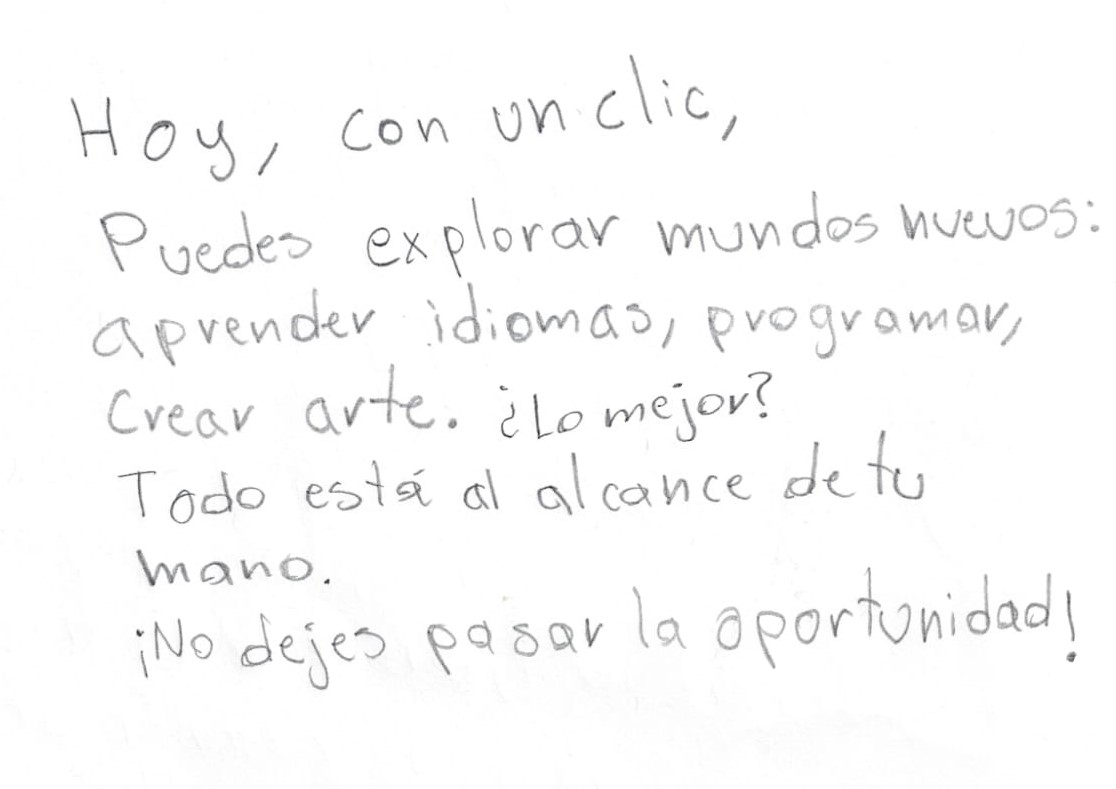 Hoy, con un clic,
Puedes explorar mundos nuevos:
aprender idiomas, programar,
Crear arte. ¿Lo mejor?
Todo está al alcance de tu
mano.
¡No dejes pasar la oportunidad!